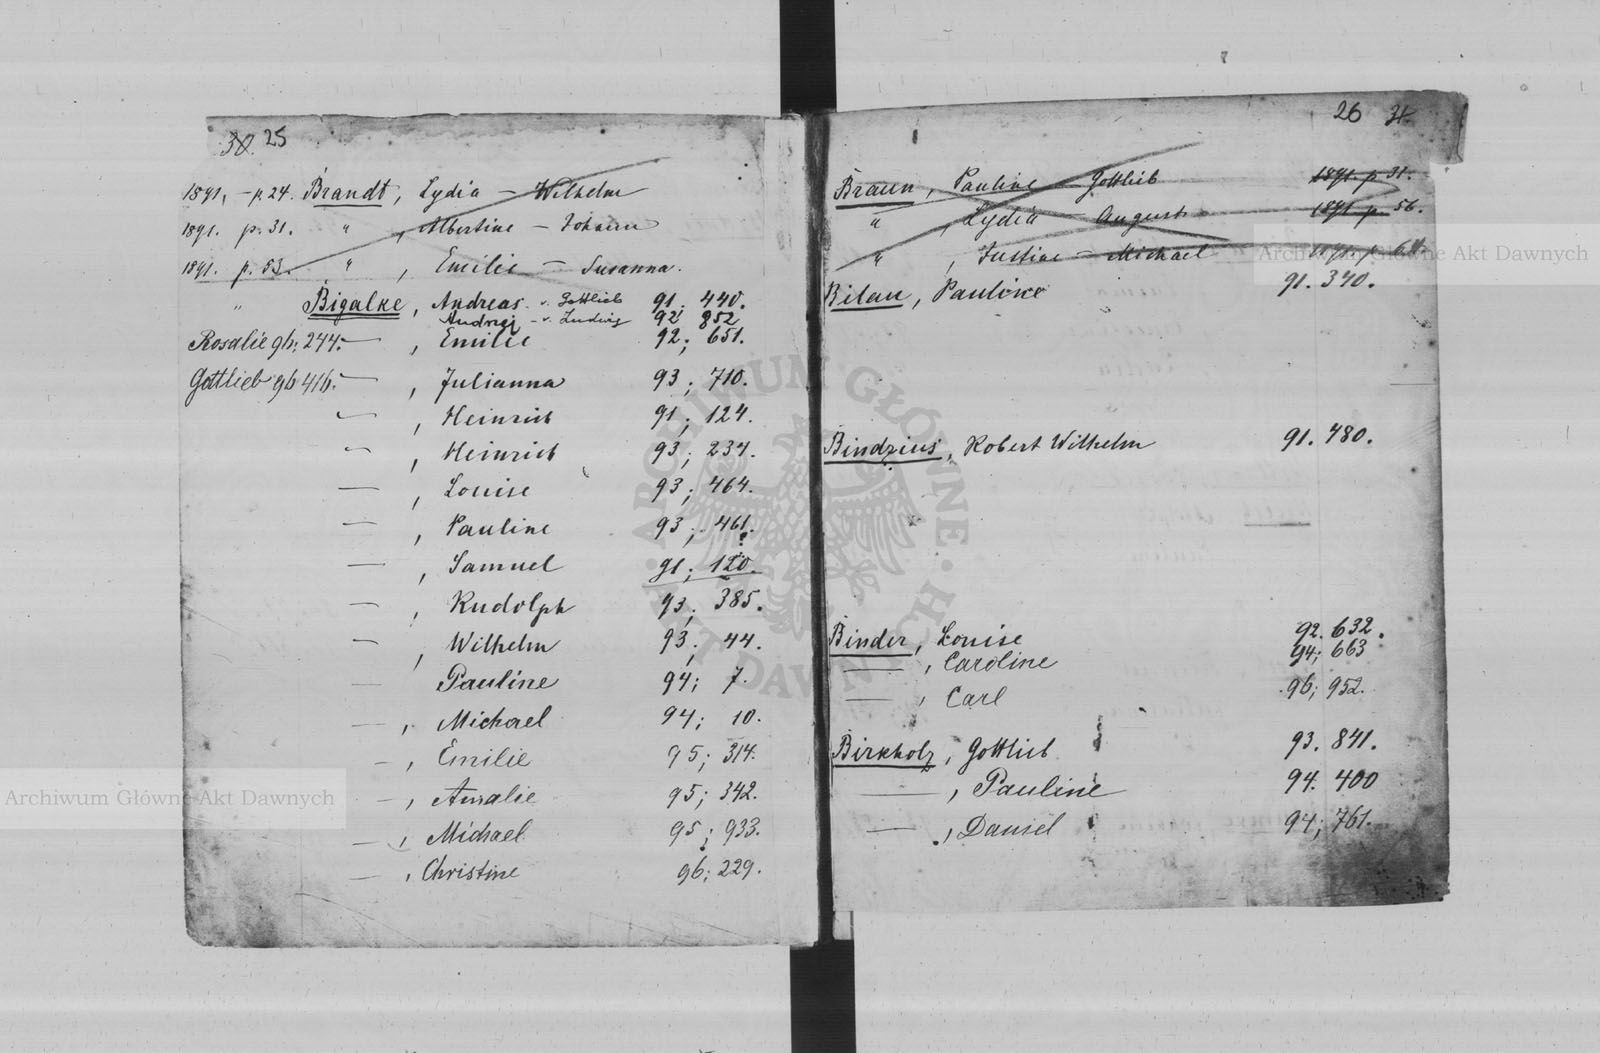 30. 25
1891, - p. 24. Brandt, Lydia - Wilhelm
1891. p. 31. " , Albertine - Johann
1891. p. 53. " , Emilie - Susanna.
" Bigalke, Andreas v. Gottlieb 91. 440.
Andrzej - v. Ludwig 92 852
Rosalie 96; 244. — , Emilie 92; 651.
Gottlieb 96 416. — , Julianna 93; 710.
— , Heinrich 91; 124.
— , Heinrich 93; 234.
— , Louise 93; 464.
— , Pauline 93; 461.
— , Samuel 91; 120.
— , Rudolph 93; 385.
— , Wilhelm 93; 44.
— Pauline 94; 7.
— , Michael 94; 10.
— , Emilie 95; 314.
— , Amalie 95; 342.
— , Michael 95; 933.
— , Christine 96; 229.
26
Braun, Pauline - Gottlieb 1891. p. 31.
" , Lydia - August 1891 p. 56.
" , Justine - Michael 1891. p. 64
Bilau, Pauline 91. 340.
Bindzius, Robert Wilhelm 91. 480.
Binder, Louise 92. 632.
— , Caroline 94; 663
— , Carl 96; 952.
Birkholz, Gottlieb 93. 841.
— , Pauline 94. 400
— , Daniel 94; 761.
Archiwum Główne Akt Dawnych
Archiwum Główne Akt Dawnych
ARCHIWUM GŁÓWNE AKT DAWNYCH